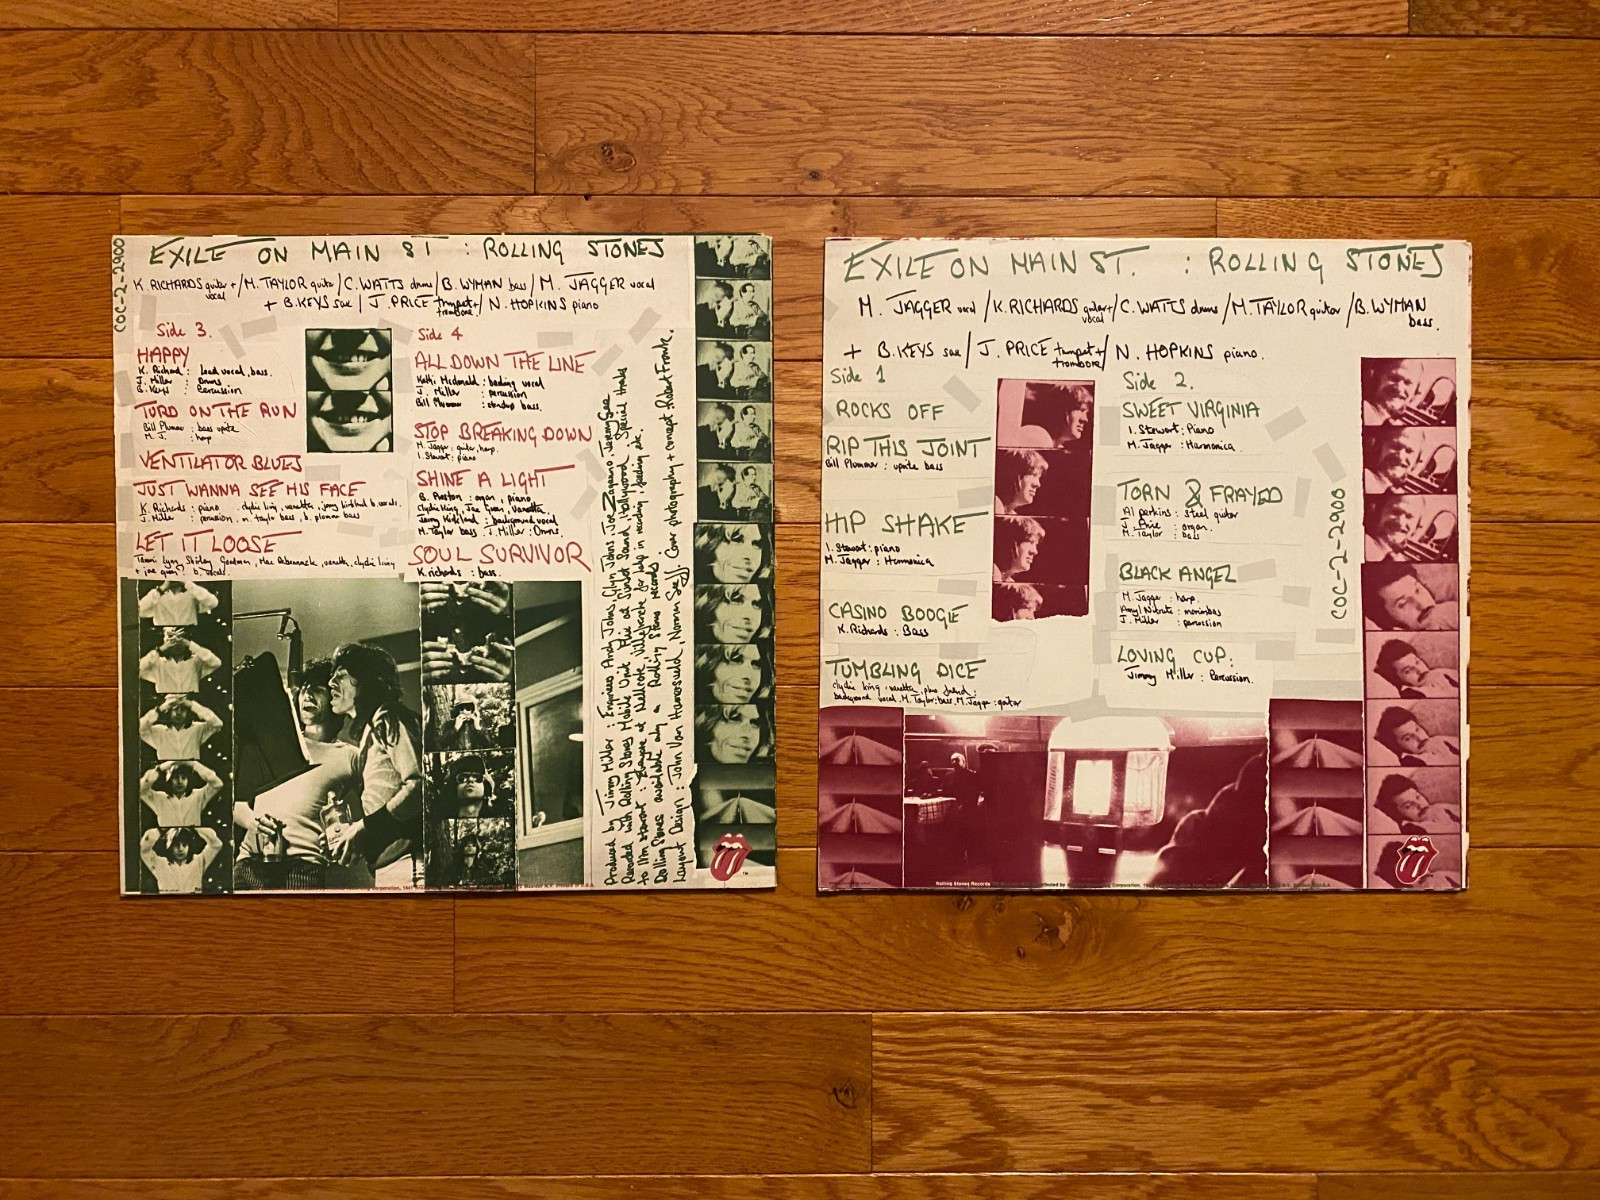 EXILE ON MAIN ST : ROLLING STONES
COC-2-2900
K. RICHARDS guitar + vocal / M. TAYLOR guitar / C. WATTS drums / B. WYMAN bass / M. JAGGER vocal
+ B. KEYS sax / J. PRICE trumpet + trombone / N. HOPKINS piano
Side 3.
HAPPY
K. Richard : Lead vocal, bass.
J. Miller : Drums
B. Keys : Percussion
TURD ON THE RUN
Bill Plummer : bass uprite
M. J. : harp
VENTILATOR BLUES
JUST WANNA SEE HIS FACE
K. Richards : piano . clydie king , vanetta , jerry kirkland b. vocals.
J. Miller : percussion . m. taylor bass , b. plummer bass
LET IT LOOSE
Tammi Lynn, Shirley Goodman, Mac Rebennack, vanetta, clydie king
+ joe green b. vocals.
Side 4
ALL DOWN THE LINE
Kathi Mcdonald : backing vocal
J. Miller : percussion
Bill Plummer : standup bass.
STOP BREAKING DOWN
M. Jagger : guitar, harp.
I. Stewart : piano
SHINE A LIGHT
B. Preston : organ, piano,
Clydie King, Joe Green, Vanetta,
Jerry Kirkland : background vocal
M. Taylor bass J. Miller : Drums.
SOUL SURVIVOR
K. richards : bass.
Produced by Jimmy Miller : Engineers Andy Johns, Glyn Johns, Joe Zagarino, Jeremy Gee
Recorded with Rolling Stones Mobile Unit Mixed at Sunset Sound, Hollywood. Special thanks
to Ian stewart : Everyone at Nellcote, Villefranche for help in recording, feeding etc.
Rolling Stones available only on Rolling Stones records
Layout Design : John Van Hamersveld, Norman Seeff. Cover photography + concept Robert Frank.
EXILE ON MAIN ST. : ROLLING STONES
M. JAGGER vocal / K. RICHARDS guitar + vocal / C. WATTS drums / M. TAYLOR guitar / B. WYMAN bass.
+ B. KEYS sax / J. PRICE trumpet + trombone / N. HOPKINS piano.
Side 1
ROCKS OFF
RIP THIS JOINT
Bill Plummer : uprite bass
HIP SHAKE
I. Stewart : piano
M. Jagger : Harmonica
CASINO BOOGIE
K. Richards : Bass
TUMBLING DICE
clydie king , vanetta, plus friend :
background vocal. M. Taylor : bass. M. Jagger : guitar
Side 2.
SWEET VIRGINIA
I. Stewart : Piano
M. Jagger : Harmonica.
TORN & FRAYED
Al perkins : steel guitar
J. Price : organ.
M. Taylor : bass
BLACK ANGEL
M. Jagger : harp.
Amyl Nitrate : marimbas
J. Miller : percussion
LOVING CUP:
Jimmy Miller : Percussion.
COC-2-2900
Rolling Stones Records